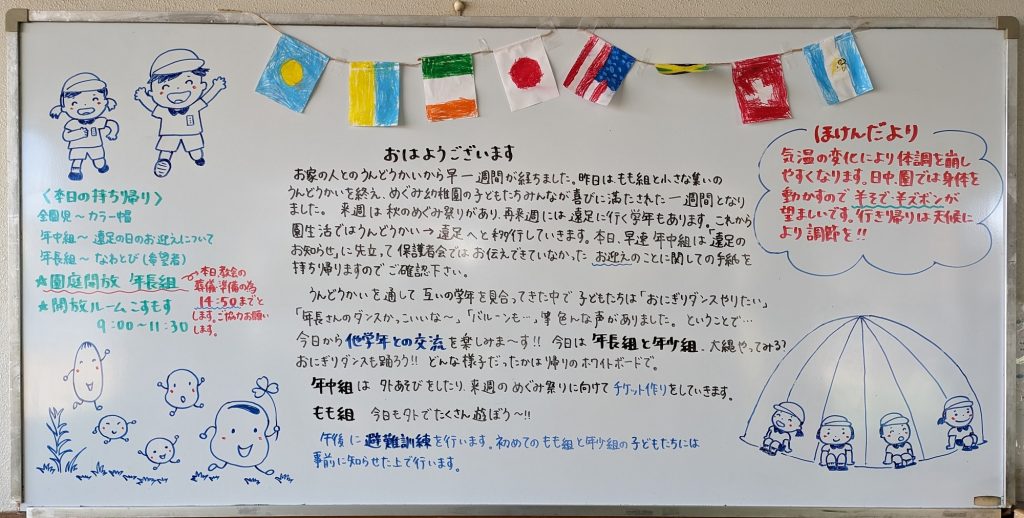 おはようございます
お家の人とのうんどうかいから早一週間が経ちました。昨日はもも組と小さな集いの
うんどうかいを終え、めぐみ幼稚園の子どもたちみんなが喜びに満たされた一週間となり
ました。来週は秋のめぐみ祭りがあり、再来週には遠足に行く学年もあります。これから
園生活ではうんどうかい→遠足へと移行していきます。本日、早速年中組は「遠足の
お知らせ」に先立って保護者会ではお伝えできていなかったお迎えのことに関しての手紙を
持ち帰りますのでご確認下さい。
うんどうかいを通して互いの学年を見合ってきた中で子どもたちは「おにぎりダンスやりたい」
「年長さんのダンスかっこいいな〜」「バルーンも…」等色んな声がありました。ということで…
今日から他学年との交流を楽しみま〜す!! 今日は年長組と年少組、大縄やってみる?
おにぎりダンスも踊ろう!! どんな様子だったかは帰りのホワイトボードで。
年中組は外あそびをしたり、来週のめぐみ祭りに向けてチケット作りをしていきます。
もも組 今日も外でたくさん遊ぼう〜!!
午後に避難訓練を行います。初めてのもも組と年少組の子どもたちには
事前に知らせた上で行います。
〈本日の持ち帰り〉
全園児〜カラー帽
年中組〜遠足の日のお迎えについて
年長組〜なわとび(希望者)
★園庭開放 年長組
本日、教会の
葬儀準備の為
14:50までと
します。ご協力お願い
します。
★開放ルームこすもす
9:00〜11:30
ほけんだより
気温の変化により体調を崩し
やすくなります。日中、園では身体を
動かすので半そで・半ズボンが
望ましいです。行き帰りは天候に
より調節を!!